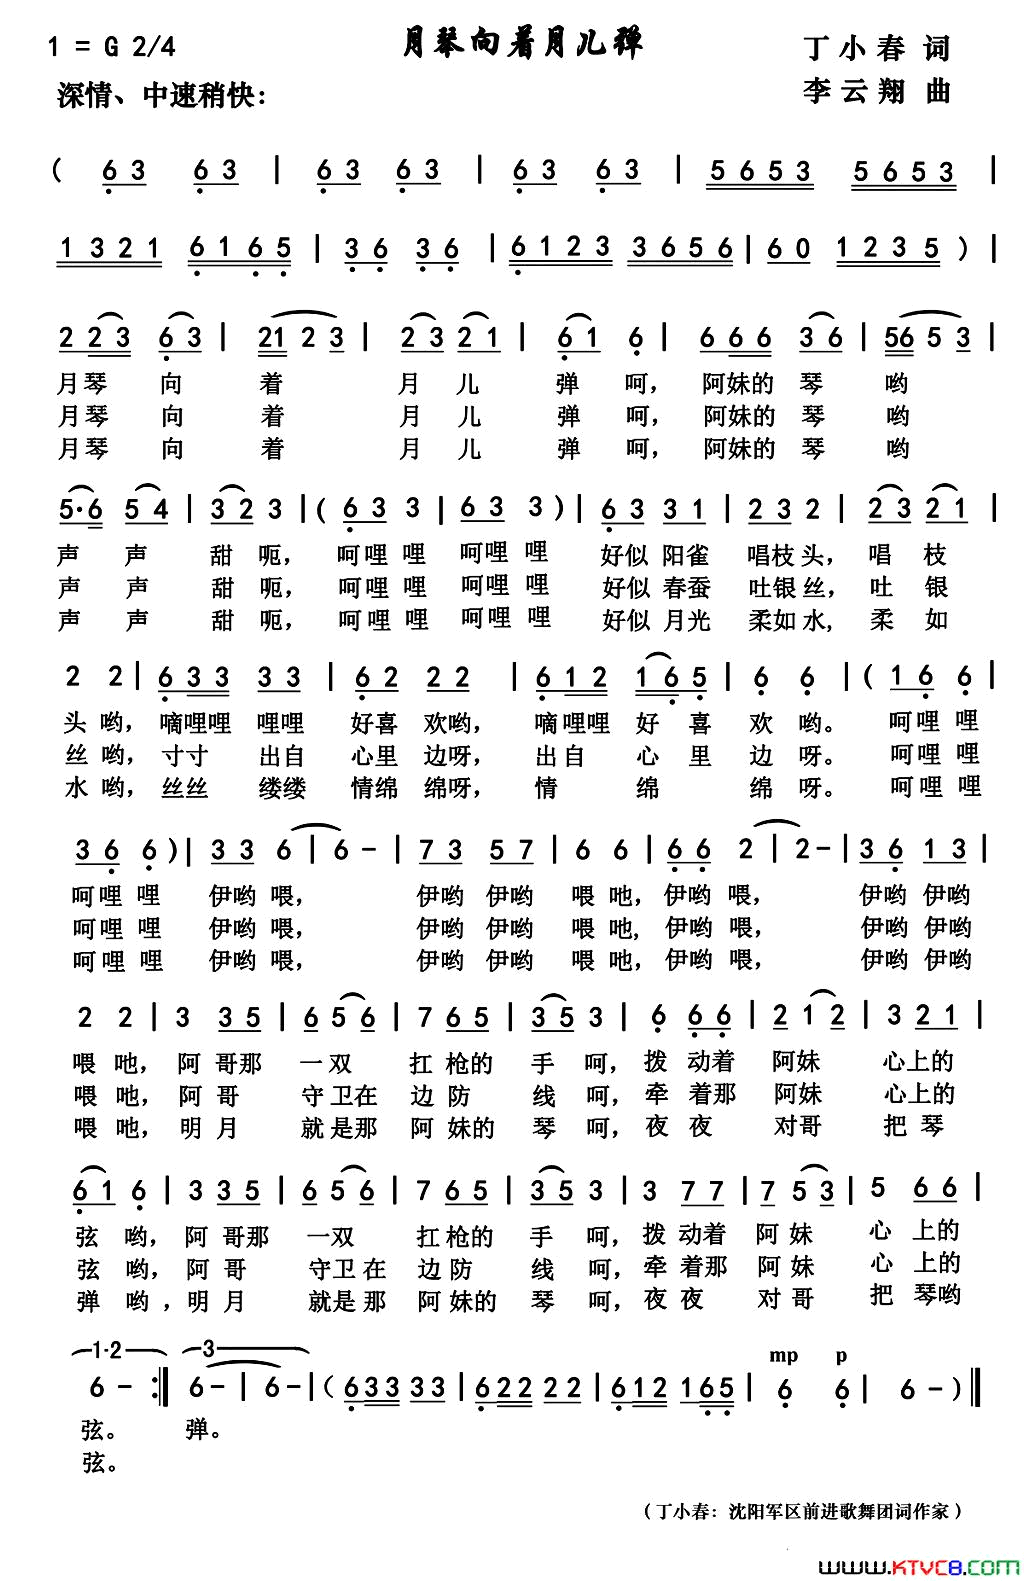 1 = G 2/4
月琴向着月儿弹
丁小春 词
深情、中速稍快：
李云翔 曲
( 6 3 6 3 | 6 3 6 3 | 6 3 6 3 | 5 6 5 3 5 6 5 3 |
1 3 2 1 6 1 6 5 | 3 6 3 6 | 6 1 2 3 3 6 5 6 | 6 0 1 2 3 5 ) |
2 2 3 6 3 | 21 2 3 | 2 3 2 1 | 6 1 6 | 6 6 6 3 6 | 56 5 3 |
月琴 向 着 月 儿 弹 呵， 阿妹的 琴 哟
月琴 向 着 月 儿 弹 呵， 阿妹的 琴 哟
月琴 向 着 月 儿 弹 呵， 阿妹的 琴 哟
5·6 5 4 | 3 2 3 | ( 6 3 3 | 6 3 3 ) | 6 3 3 1 | 2 3 2 | 2 3 2 1 |
声 声 甜 呃， 呵哩 哩 呵哩 哩 好似 阳雀 唱枝 头， 唱 枝
声 声 甜 呃， 呵哩 哩 呵哩 哩 好似 春蚕 吐银 丝， 吐 银
声 声 甜 呃， 呵哩 哩 呵哩 哩 好似 月光 柔如 水， 柔 如
2 2 | 6 3 3 3 3 | 6 2 2 2 | 6 1 2 1 6 5 | 6 6 | ( 1 6 6 |
头 哟， 嘀哩哩 哩哩 好喜 欢哟， 嘀哩哩 好 喜 欢 哟。 呵哩 哩
丝 哟， 寸寸 出自 心里 边呀， 出自 心 里 边 呀。 呵哩 哩
水 哟， 丝丝 缕缕 情绵 绵呀， 情 绵 绵 呀。 呵哩 哩
3 6 6 ) | 3 3 6 | 6 - | 7 3 5 7 | 6 6 | 6 6 2 | 2 - | 3 6 1 3 |
呵哩 哩 伊哟 喂， 伊哟 伊哟 喂 吔， 伊哟 喂， 伊哟 伊哟
呵哩 哩 伊哟 喂， 伊哟 伊哟 喂 吔， 伊哟 喂， 伊哟 伊哟
呵哩 哩 伊哟 喂， 伊哟 伊哟 喂 吔， 伊哟 喂， 伊哟 伊哟
2 2 | 3 3 5 | 6 5 6 | 7 6 5 | 3 5 3 | 6 6 6 | 2 1 2 | 3 2 1 |
喂 吔， 阿 哥那 一双 扛 枪的 手 呵， 拨 动着 阿妹 心上的
喂 吔， 阿 哥 守卫在 边 防 线 呵， 牵 着那 阿妹 心上的
喂 吔， 明 月 就是那 阿 妹的 琴 呵， 夜 夜 对哥 把 琴
6 1 6 | 3 3 5 | 6 5 6 | 7 6 5 | 3 5 3 | 3 7 7 | 7 5 3 | 5 6 6 |
弦 哟， 阿 哥那 一双 扛 枪的 手 呵， 拨 动着 阿 妹 心 上的
弦 哟， 阿 哥 守卫 在 边 防 线 呵， 牵 着那 阿 妹 心 上的
弹 哟， 明 月 就是 那 阿 妹的 琴 呵， 夜 夜 对 哥 把 琴哟
1·2 3 mp p
6 - :‖ 6 - | 6 - | ( 6 3 3 3 3 | 6 2 2 2 2 | 6 1 2 1 6 5 | 6 6 | 6 - ) ‖
弦。 弹。
弦。
（丁小春：沈阳军区前进歌舞团词作家）
www.KTVC8.com